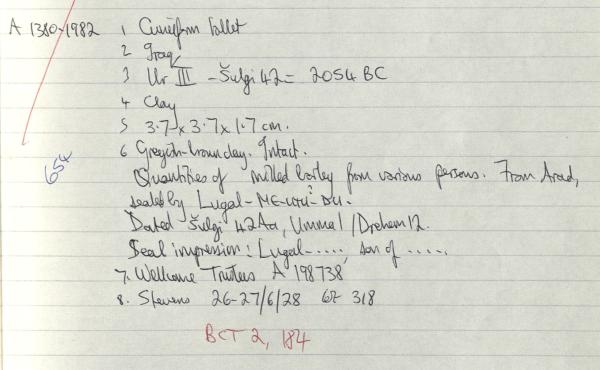 A 1380-1982 1 Cuneiform Tablet
2 Iraq
3 Ur III - Šulgi 42 = 2054 BC
4 Clay
5 3.7 x 3.7 x 1.7 cm.
654
6 Greyish-brown clay. Intact.
Quantities of milled barley from various persons. From Arad,
sealed by Lugal-ME-UTU?-DU.
Dated Šulgi 42Aa, Umma 1/Drehem 12.
Seal impression: Lugal-....., son of .....
7. Wellcome Trustees A 198738
8. Stevens 26-27/6/28 67 318
BCT 2, 184